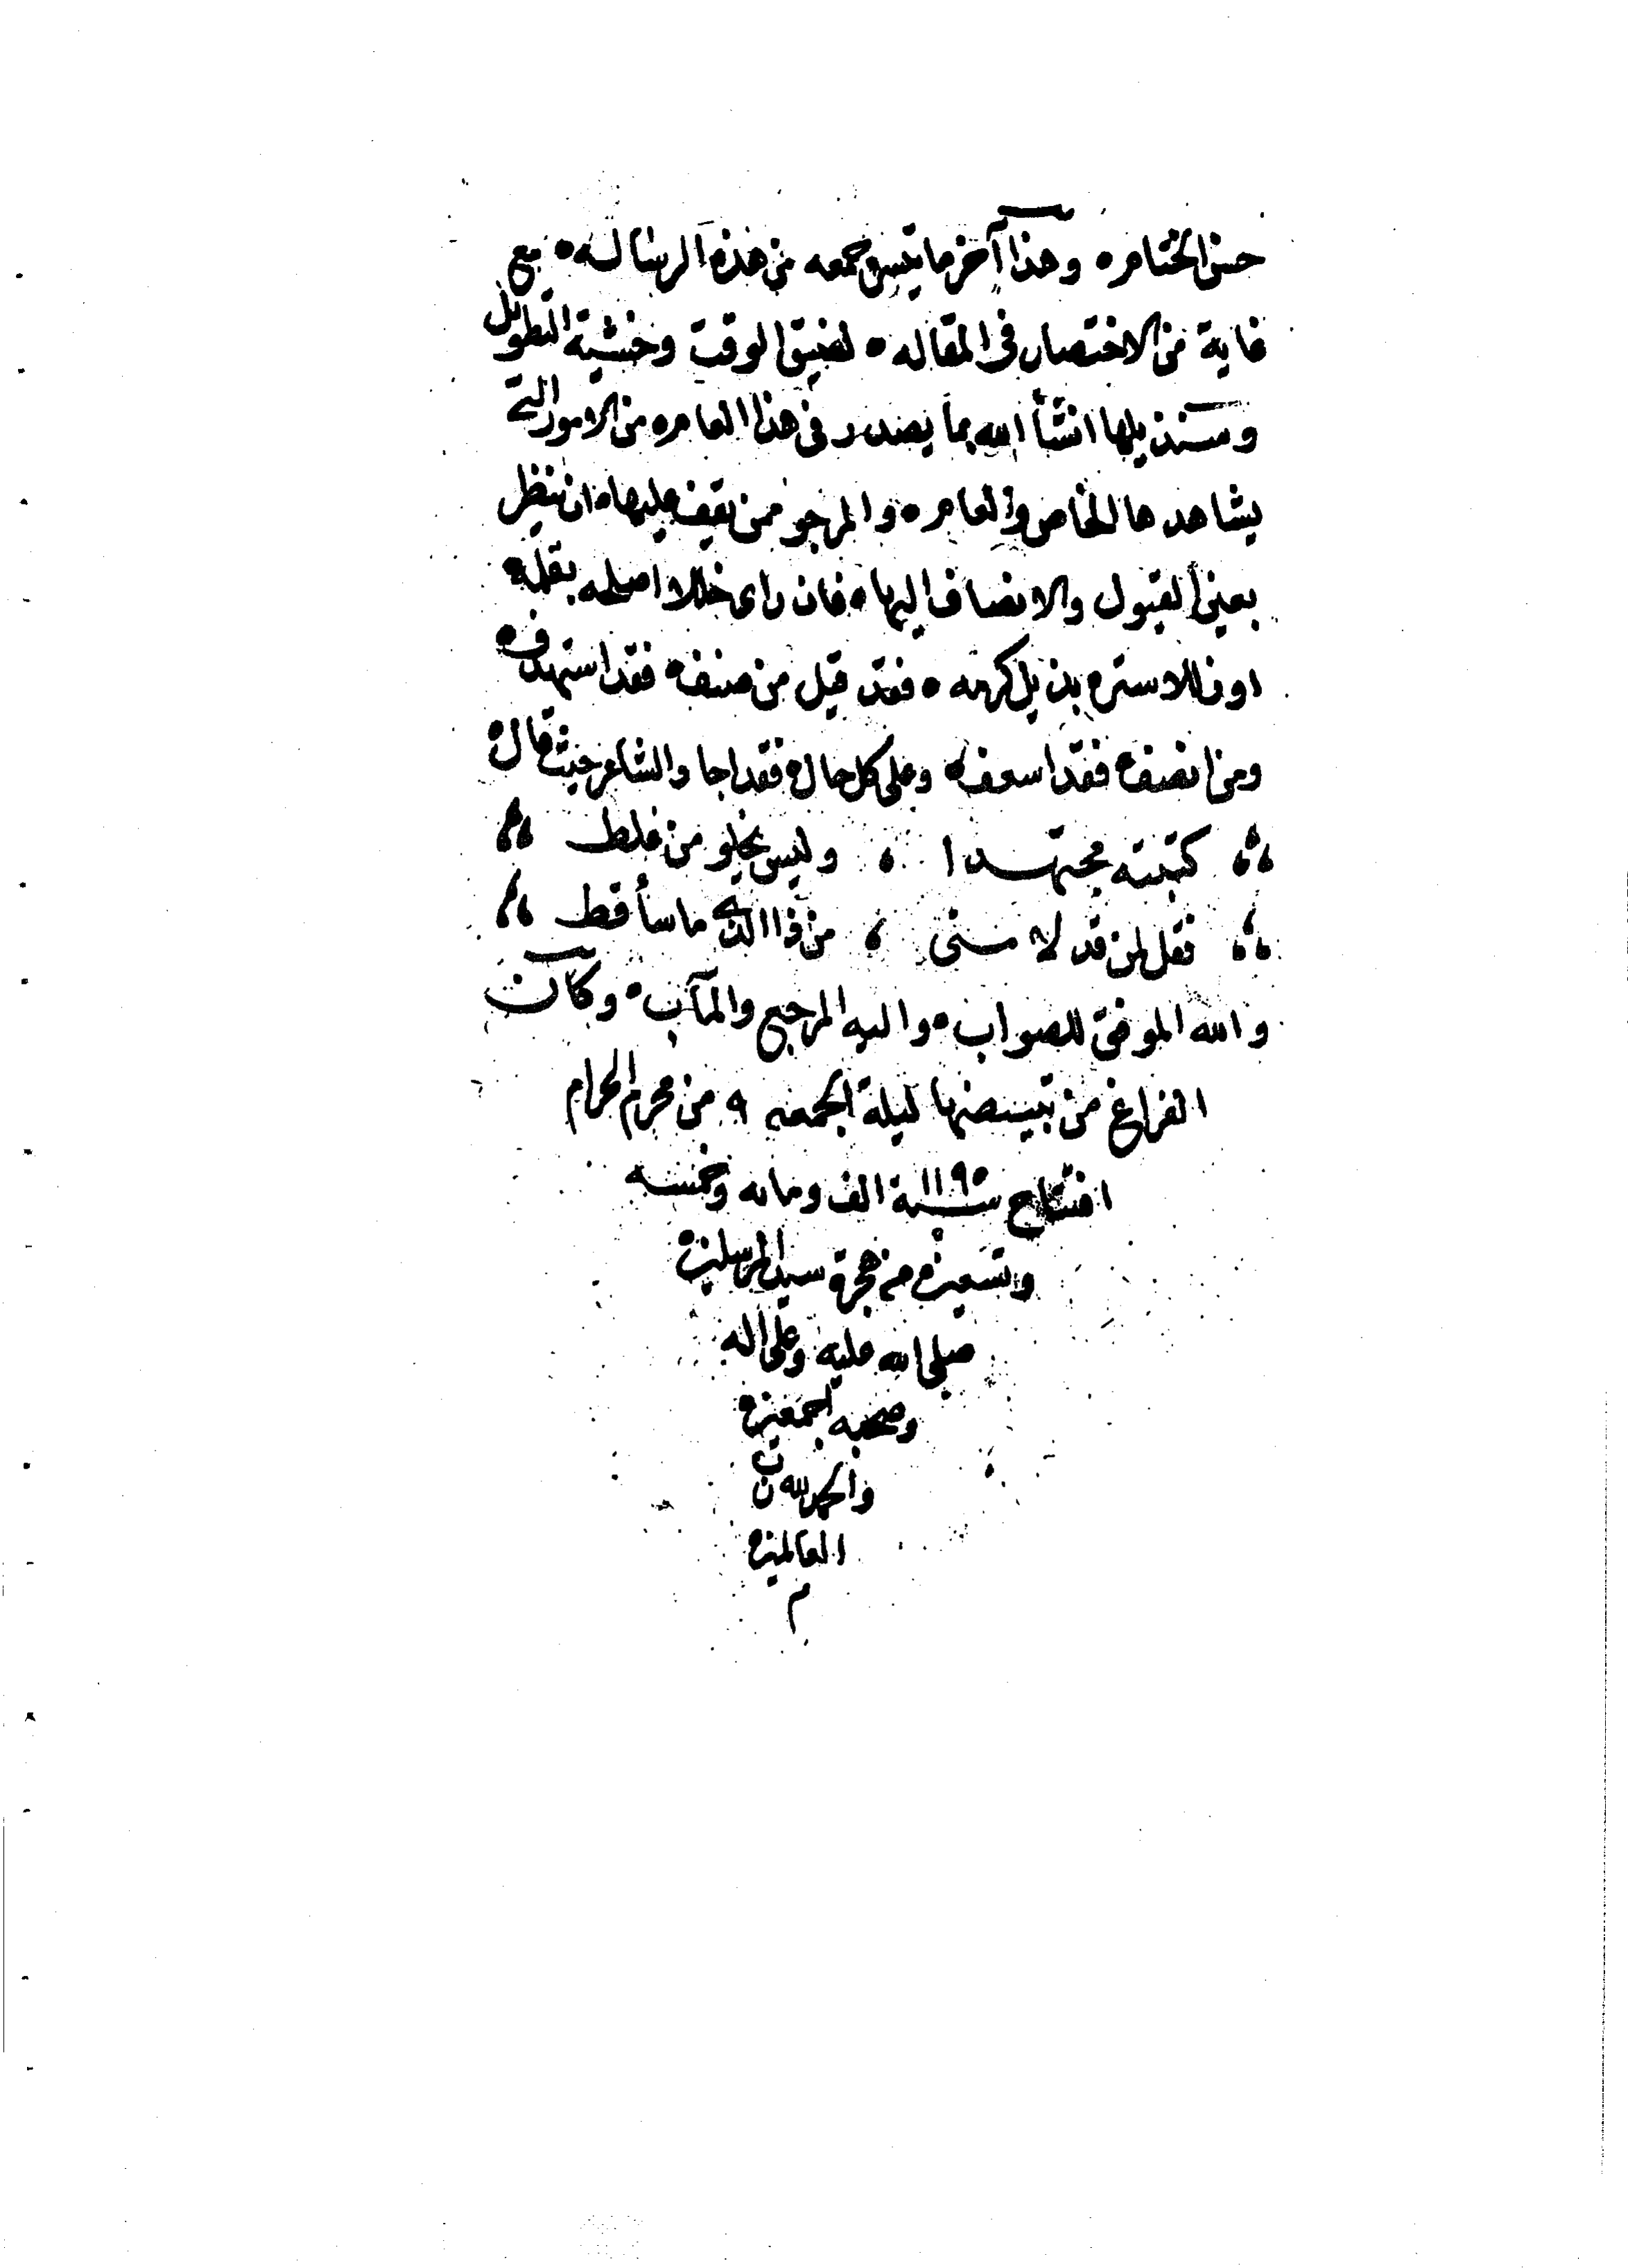 حسن الختام ه وهذا آخر ما تيسر جمعه من هذه الرساله ه مع
غاية من الاختصار فى المقاله ه لضيق الوقت وخشية التطويل
وسنذيلها انشأ الله بما يصدر فى هذا العام ه من الامور التى
يشاهدها الخاص والعام ه والمرجو ممن يقف عليها ه ان ينظر
بعين القبول والانصاف اليها ه فان راى خللا اصلحه بقلمه
اوزللا ستره بذيل كرمه ه فقد قيل من صنف ه فقد استهدف ه
ومن انصف ه فقد اسعف ه وعلى كل حال ه فقد اجاد الشاعر حيث قال ه
كتبته مجتهدا ، وليس يخلو من غلط
فقل لمن قد لامنى ، من ذا الذى ما سأ قط
والله الموفق للصواب ه واليه المرجع والمآب ه وكان
الفراغ من تبييضها ليلة الجمعه ٩ من محرم الحرام
افتتاح سنة ١١٩٥ الف ومايه وخمسه
وتسعين من هجرة سيد المرسلين
صلى الله عليه وعلى اله
وصحبه اجمعين
والحمد لله رب
العالمين
م